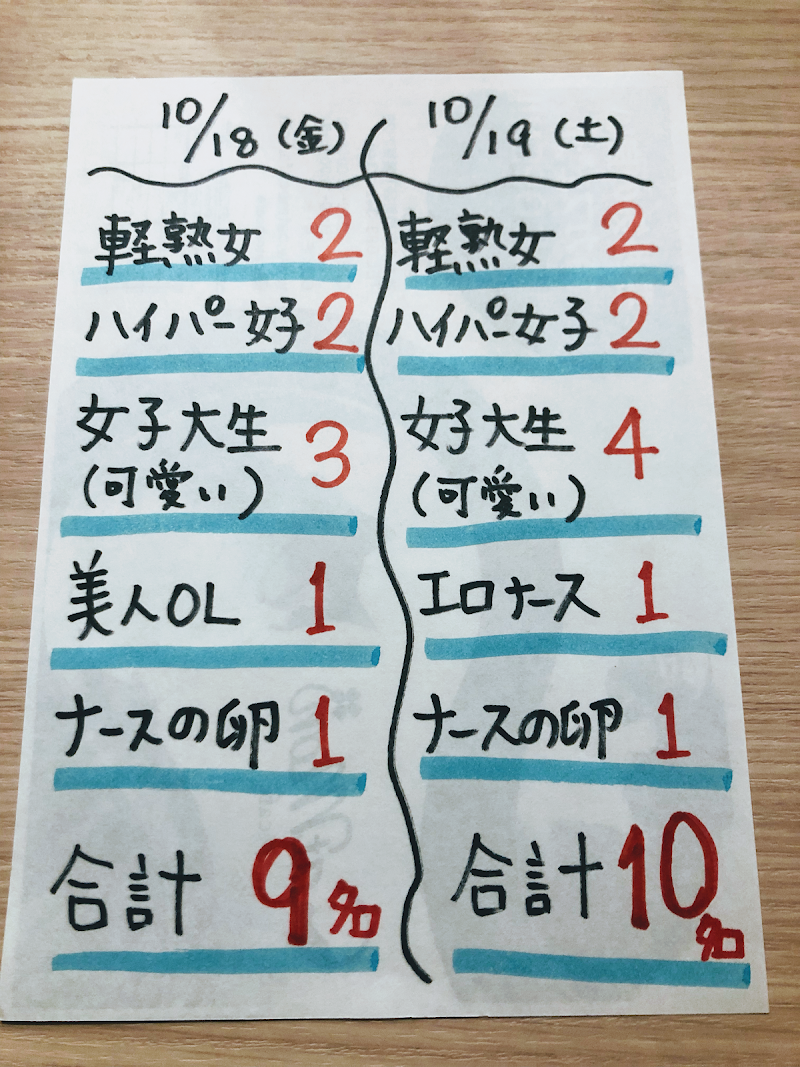 10/18(金)
軽熟女 2
ハイパー女子 2
女子大生 3
(可愛い)
美人OL 1
ナースの卵 1
合計 9名
10/19(土)
軽熟女 2
ハイパー女子 2
女子大生 4
(可愛い)
エロナース 1
ナースの卵 1
合計 10名